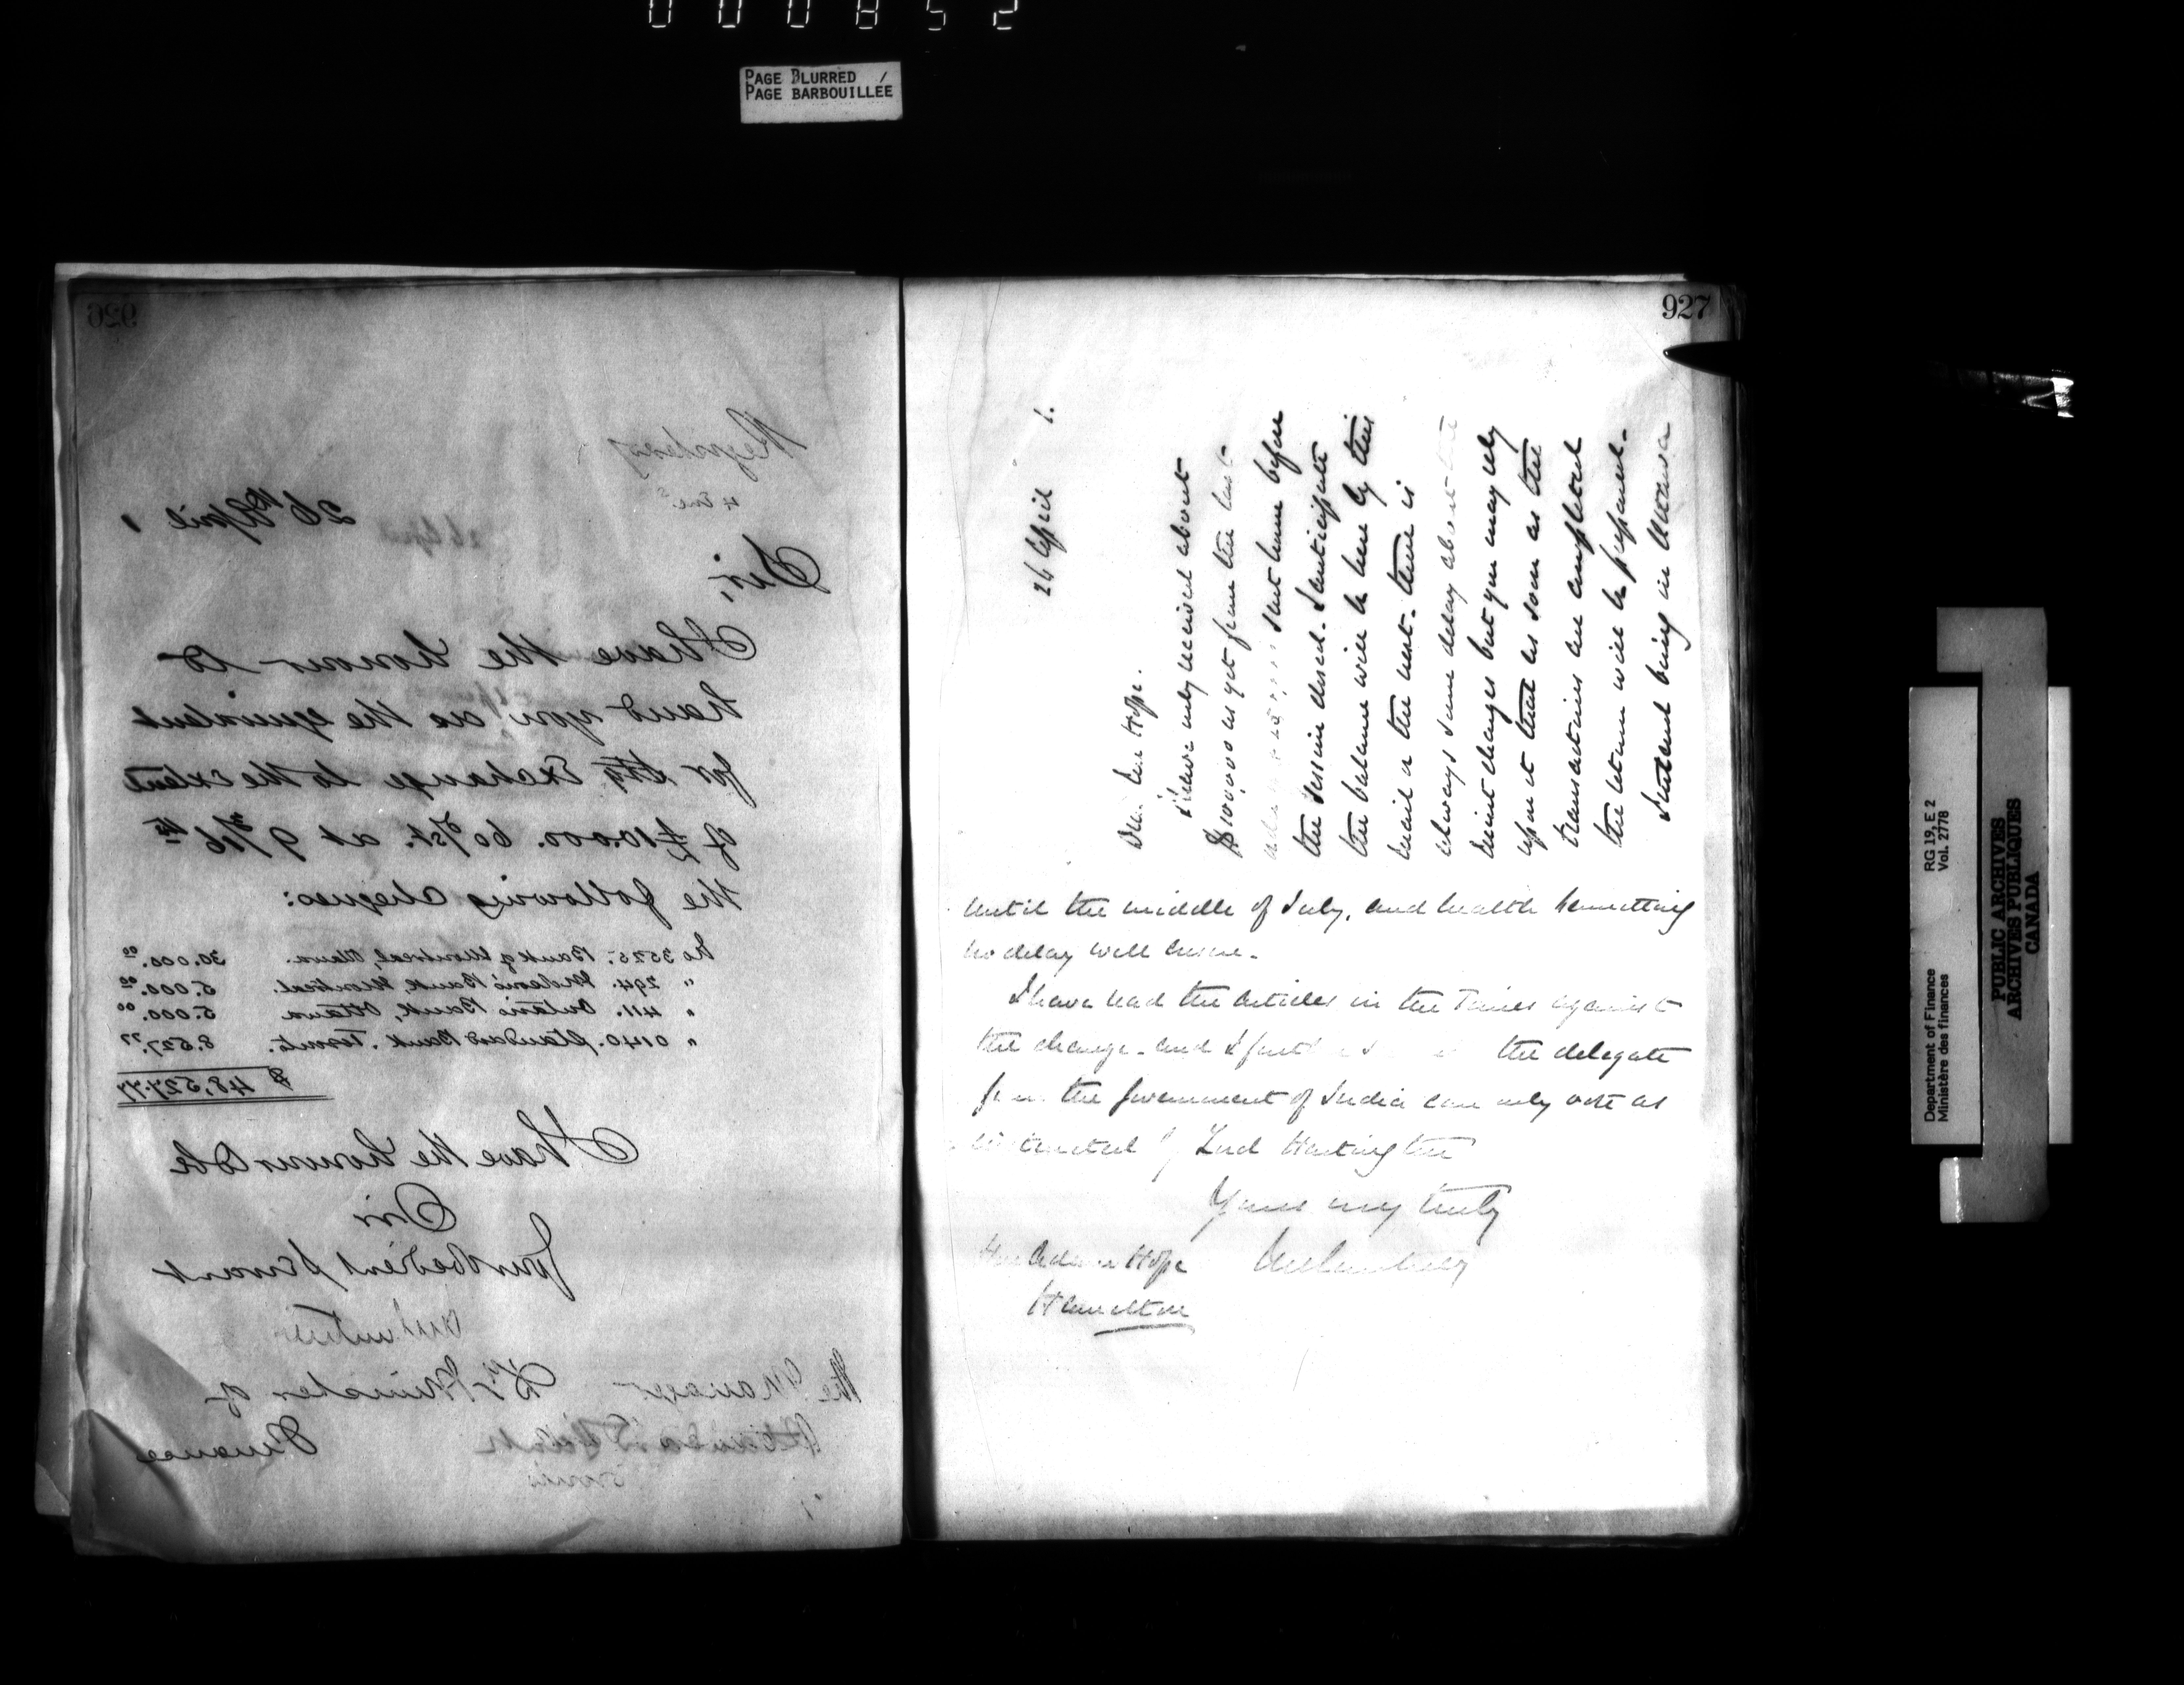 000852
PAGE BLURRED /
PAGE BARBOUILLÉE
926
Registered
4 Enc^s
26^th April 1
Sir,
I have the honour to
hand you as the equivalent
for Stg Exchange to the extent
of £10.000. 60 d/st. at 9 3/16 th
the following cheques:
No 3525. Bank of Montreal, Ottawa. 30.000.00
" 294. Molsons Bank, Montreal. 5.000.00
" 411. Ontario Bank, Ottawa 5.000.00
" 0140. Standard Bank. Toronto. 8.527.77
$ 48,527.77
I have the honour to be
Sir
Your obedient Servant
Dy Minister of
Finance
The Manager
927
26 April 1.
Dear Mr Hope.
I have only received about
$100,000 as yet from the last
sent home before
the Session closed. I anticipate
the balance will be here by this
mail or the next. There is
always some delay about the
changes but you may rely
upon it that as soon as the
transactions are completed
the return will be prepared.
I intend being in Ottawa
until the middle of July, and health permitting
no delay will ensue.
I have read the articles in the Times against
the change. and I the delegate
from the Government of India can only vote as
instructed by Lord Hartington
Yours very truly
Hon Adam Hope
Hamilton
Department of Finance RG 19, E 2
Ministère des finances Vol. 2778
PUBLIC ARCHIVES
ARCHIVES PUBLIQUES
CANADA